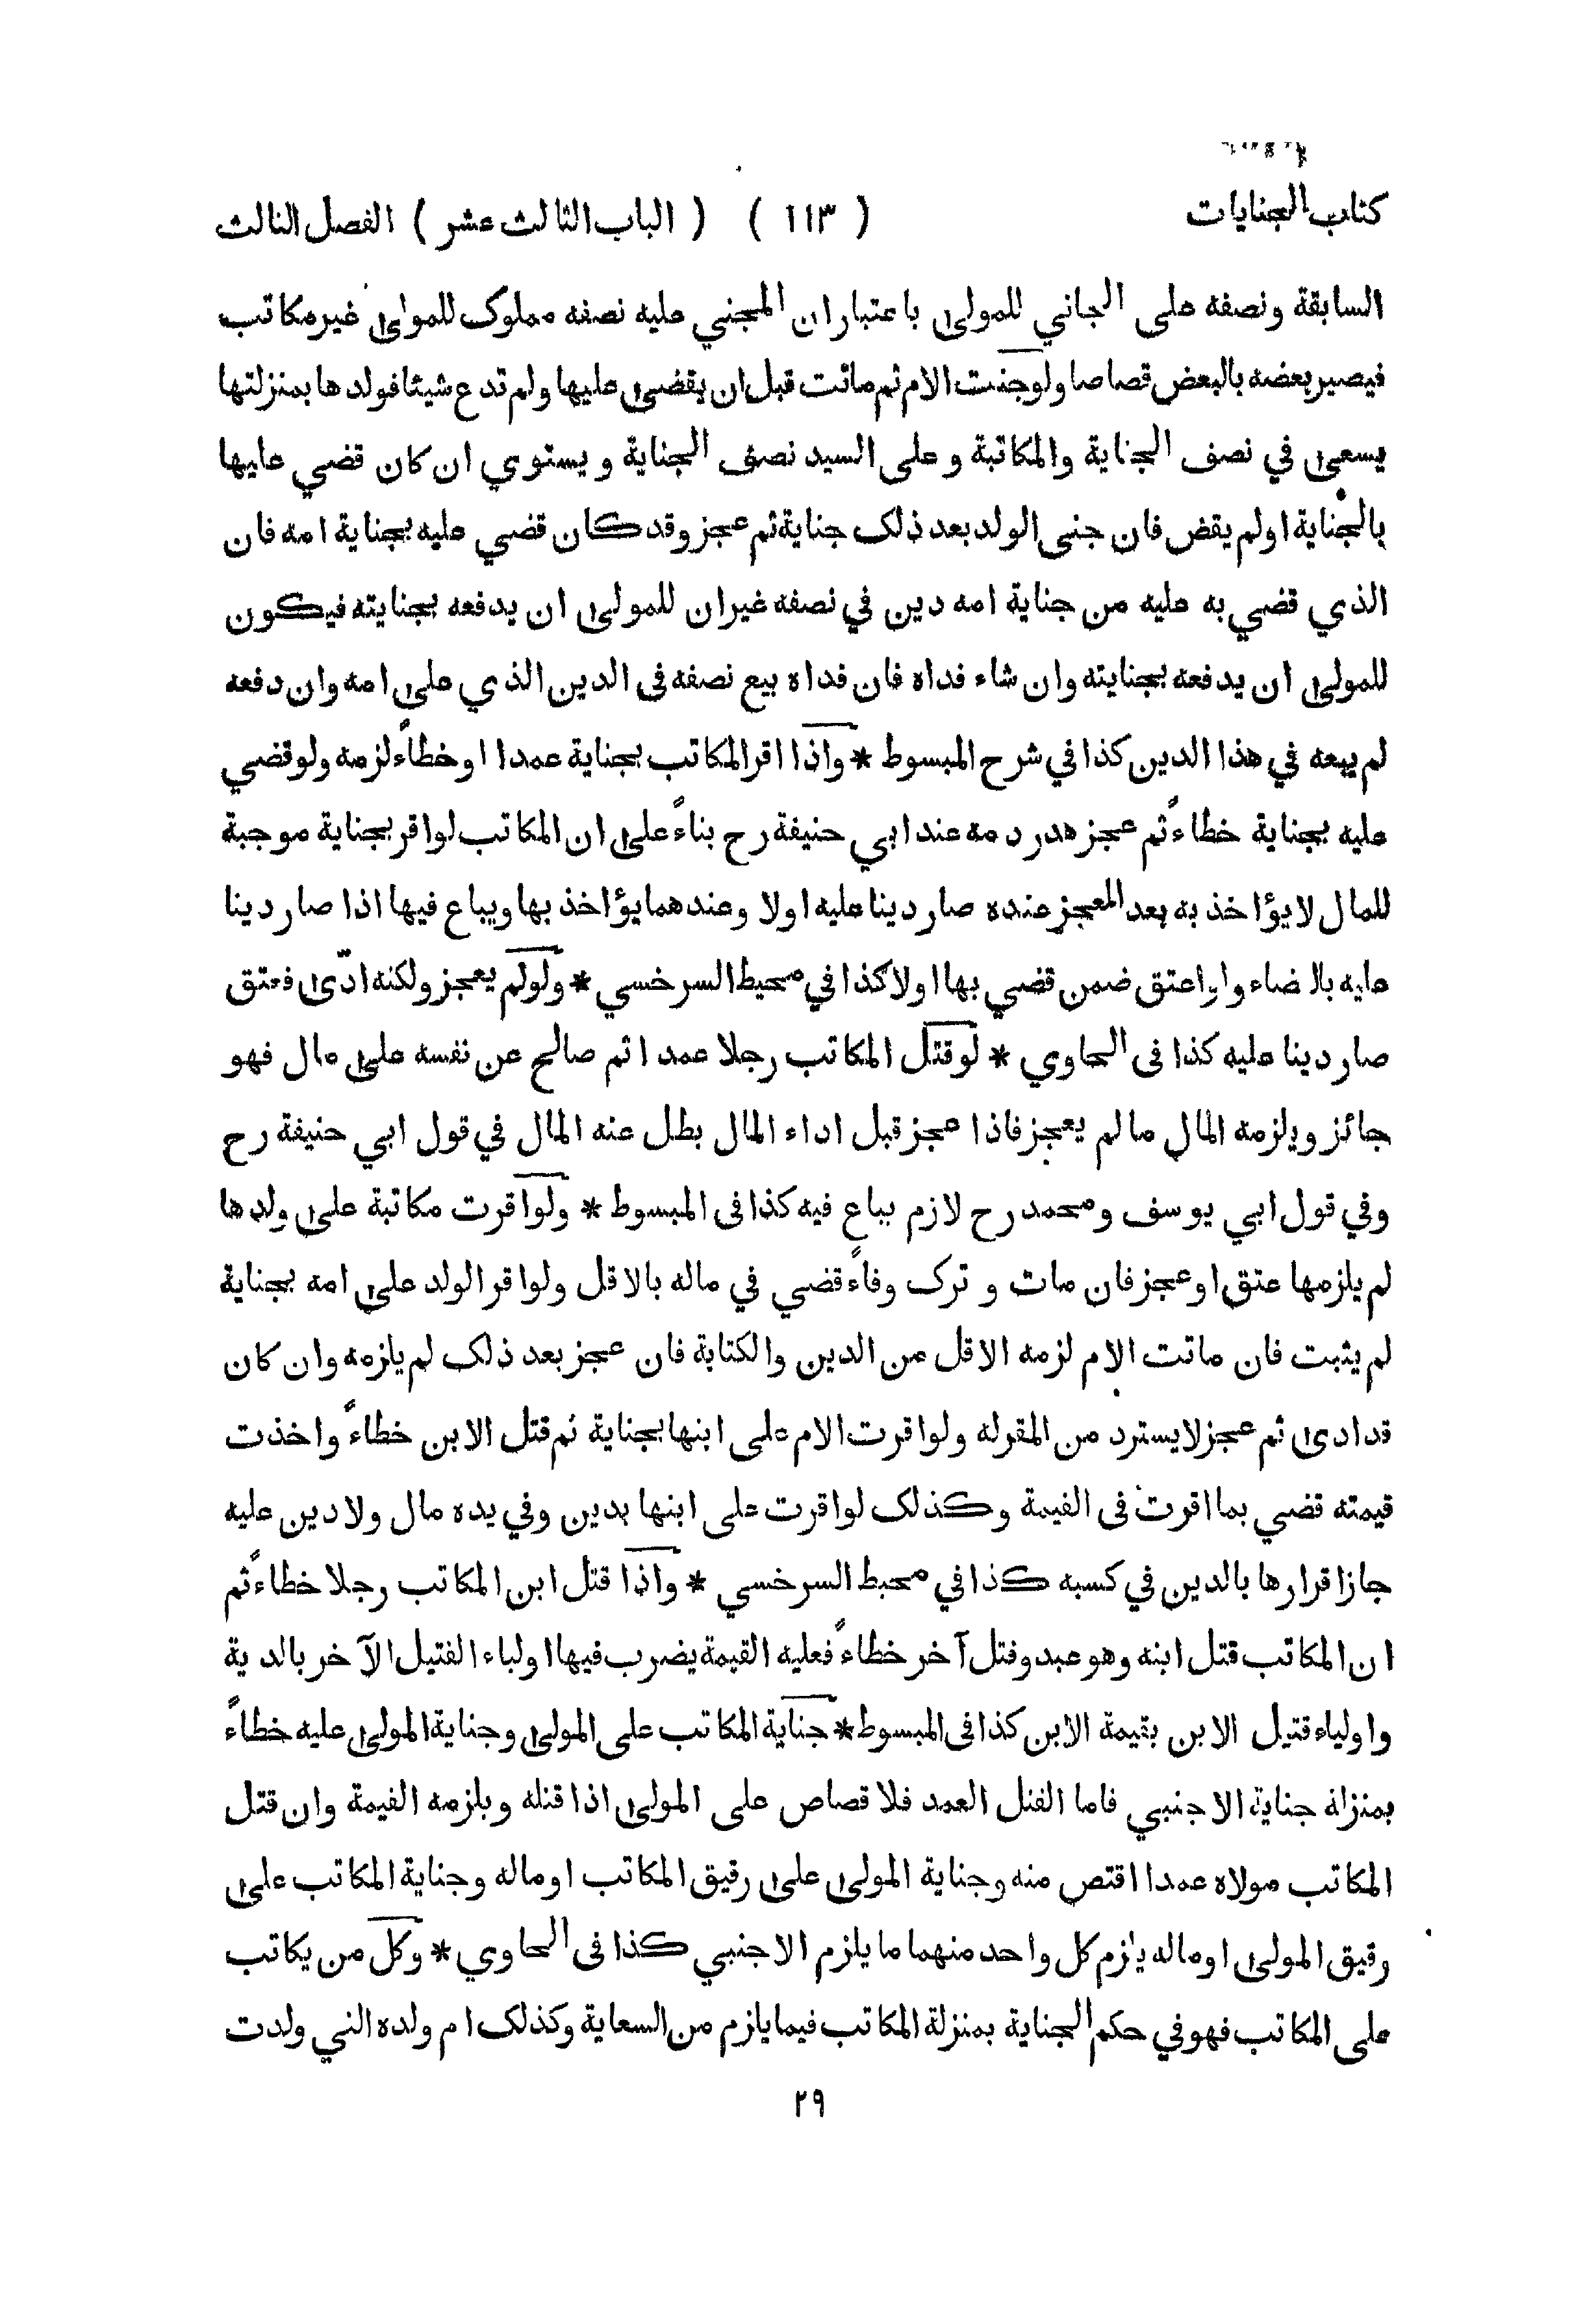 كتاب الجنايات ( ١١٣ ) ( الباب الثالث عشر ) الفصل الثالث
السابقة ونصفه على الجاني للمولى باعتبار ان المجني عليه نصفه مملوك للمولى غير مكاتب
فيصير بعضه بالبعض قصاصا ولو جنت الام ثم ماتت قبل ان يقضى عليها ولم تدع شيئا فولدها بمنزلتها
يسعى في نصف الجناية والمكاتبة وعلى السيد نصف الجناية ويستوي ان كان قضي عليها
بالجناية اولم يقض فان جنى الولد بعد ذلك جناية ثم عجز وقد كان قضي عليه بجناية امه فان
الذي قضي به عليه من جناية امه دين في نصفه غير ان للمولى ان يدفعه بجنايته فيكون
للمولى ان يدفعه بجنايته وان شاء فداه فان فداه بيع نصفه فى الدين الذي على امه وان دفعه
لم يبعه في هذا الدين كذا في شرح المبسوط * واذا اقر المكاتب بجناية عمدا او خطاءً لزمه ولو قضي
عليه بجناية خطاءً ثم عجز هدر دمه عند ابي حنيفة رح بناءً على ان المكاتب لواقر بجناية موجبة
للمال لا يؤاخذ به بعد العجز عنده صار دينا عليه اولا وعندهما يؤاخذ بها ويباع فيها اذا صار دينا
عليه بالقضاء وان اعتق ضمن قضي بها اولا كذا في محيط السرخسي * ولو لم يعجز ولكنه ادّى فعتق
صار دينا عليه كذا فى الحاوي * لو قتل المكاتب رجلا عمدا ثم صالح عن نفسه على مال فهو
جائز ويلزمه المال ما لم يعجز فاذا عجز قبل اداء المال بطل عنه المال في قول ابي حنيفة رح
وفي قول ابي يوسف ومحمد رح لازم يباع فيه كذا فى المبسوط * ولو اقرت مكاتبة على ولدها
لم يلزمها عتق او عجز فان مات و ترك وفاءً قضي في ماله بالاقل ولو اقر الولد على امه بجناية
لم يثبت فان ماتت الام لزمه الاقل من الدين والكتابة فان عجز بعد ذلك لم يلزمه وان كان
قد ادى ثم عجز لا يسترد من المقرله ولو اقرت الام على ابنها بجناية ثم قتل الابن خطاءً واخذت
قيمته قضي بما اقرت فى القيمة وكذلك لو اقرت على ابنها بدين وفي يده مال ولا دين عليه
جاز اقرارها بالدين في كسبه كذا في محيط السرخسي * واذا قتل ابن المكاتب رجلا خطاءً ثم
ان المكاتب قتل ابنه وهو عبد وقتل آخر خطاءً فعليه القيمة يضرب فيها اولياء القتيل الآخر بالدية
واولياء قتيل الابن بقيمة الابن كذا فى المبسوط * جناية المكاتب على المولى وجناية المولى عليه خطاءً
بمنزلة جناية الاجنبي فاما القتل العمد فلا قصاص على المولى اذا قتله ويلزمه القيمة وان قتل
المكاتب مولاه عمدا اقتص منه وجناية المولى على رقيق المكاتب او ماله وجناية المكاتب على
رقيق المولى او ماله يلزم كل واحد منهما ما يلزم الاجنبي كذا فى الحاوي * وكل من يكاتب
على المكاتب فهو في حكم الجناية بمنزلة المكاتب فيما يلزم من السعاية وكذلك ام ولده التي ولدت
٢٩